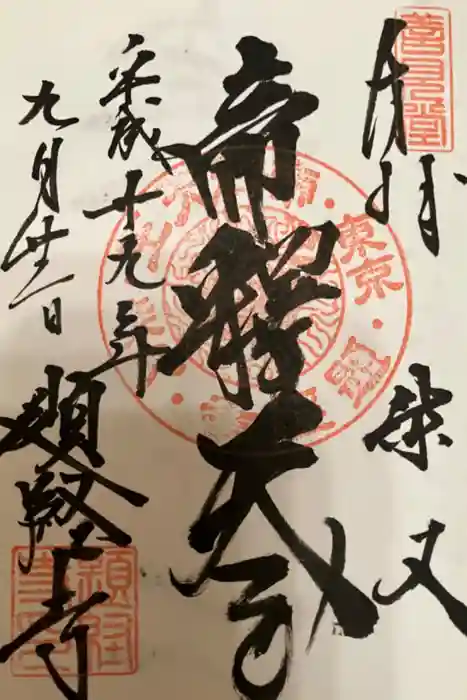 奉拝
柴又
帝釈天
平成十九年
九月廿一日
題経寺
東京